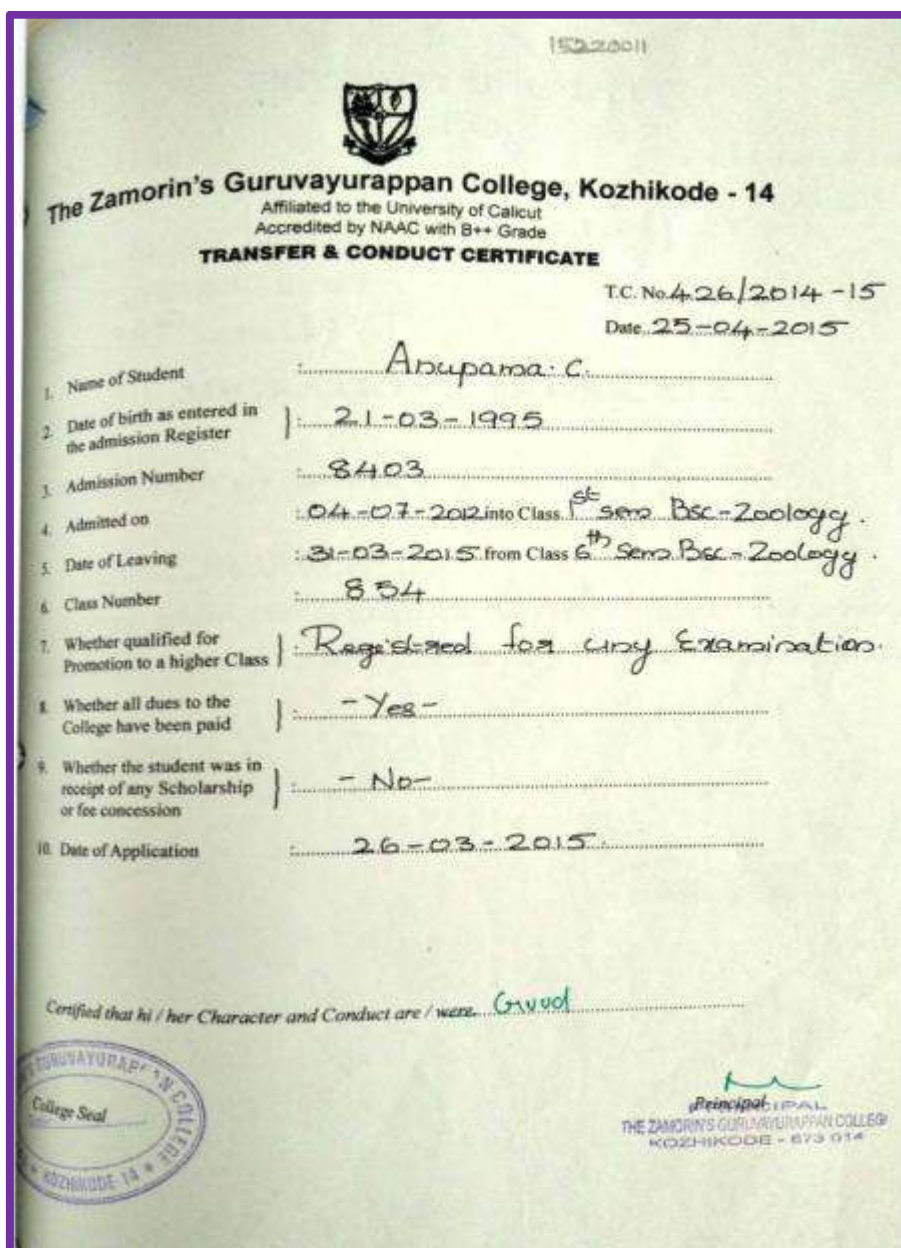 15220011
The Zamorin's Guruvayurappan College, Kozhikode - 14
Affiliated to the University of Calicut
Accredited by NAAC with B++ Grade
TRANSFER & CONDUCT CERTIFICATE
T.C. No. 426/2014-15
Date 25-04-2015
1. Name of Student : Anupama. C.
2. Date of birth as entered in the admission Register } : 21-03-1995
3. Admission Number : 8403
4. Admitted on : 04-07-2012 into Class 1st sem Bsc-Zoology.
5. Date of Leaving : 31-03-2015 from Class 6th Sem Bsc-Zoology.
6. Class Number : 834
7. Whether qualified for Promotion to a higher Class } : Registred for Examination.
8. Whether all dues to the College have been paid } : -Yes-
9. Whether the student was in receipt of any Scholarship or fee concession } : -No-
10. Date of Application : 26-03-2015.
Certified that hi / her Character and Conduct are / were Good
GURUVAYURAPPAN COLLEGE
College Seal
KOZHIKODE-14
Principal
PRINCIPAL
THE ZAMORIN'S GURUVAYURAPPAN COLLEGE
KOZHIKODE - 673 014